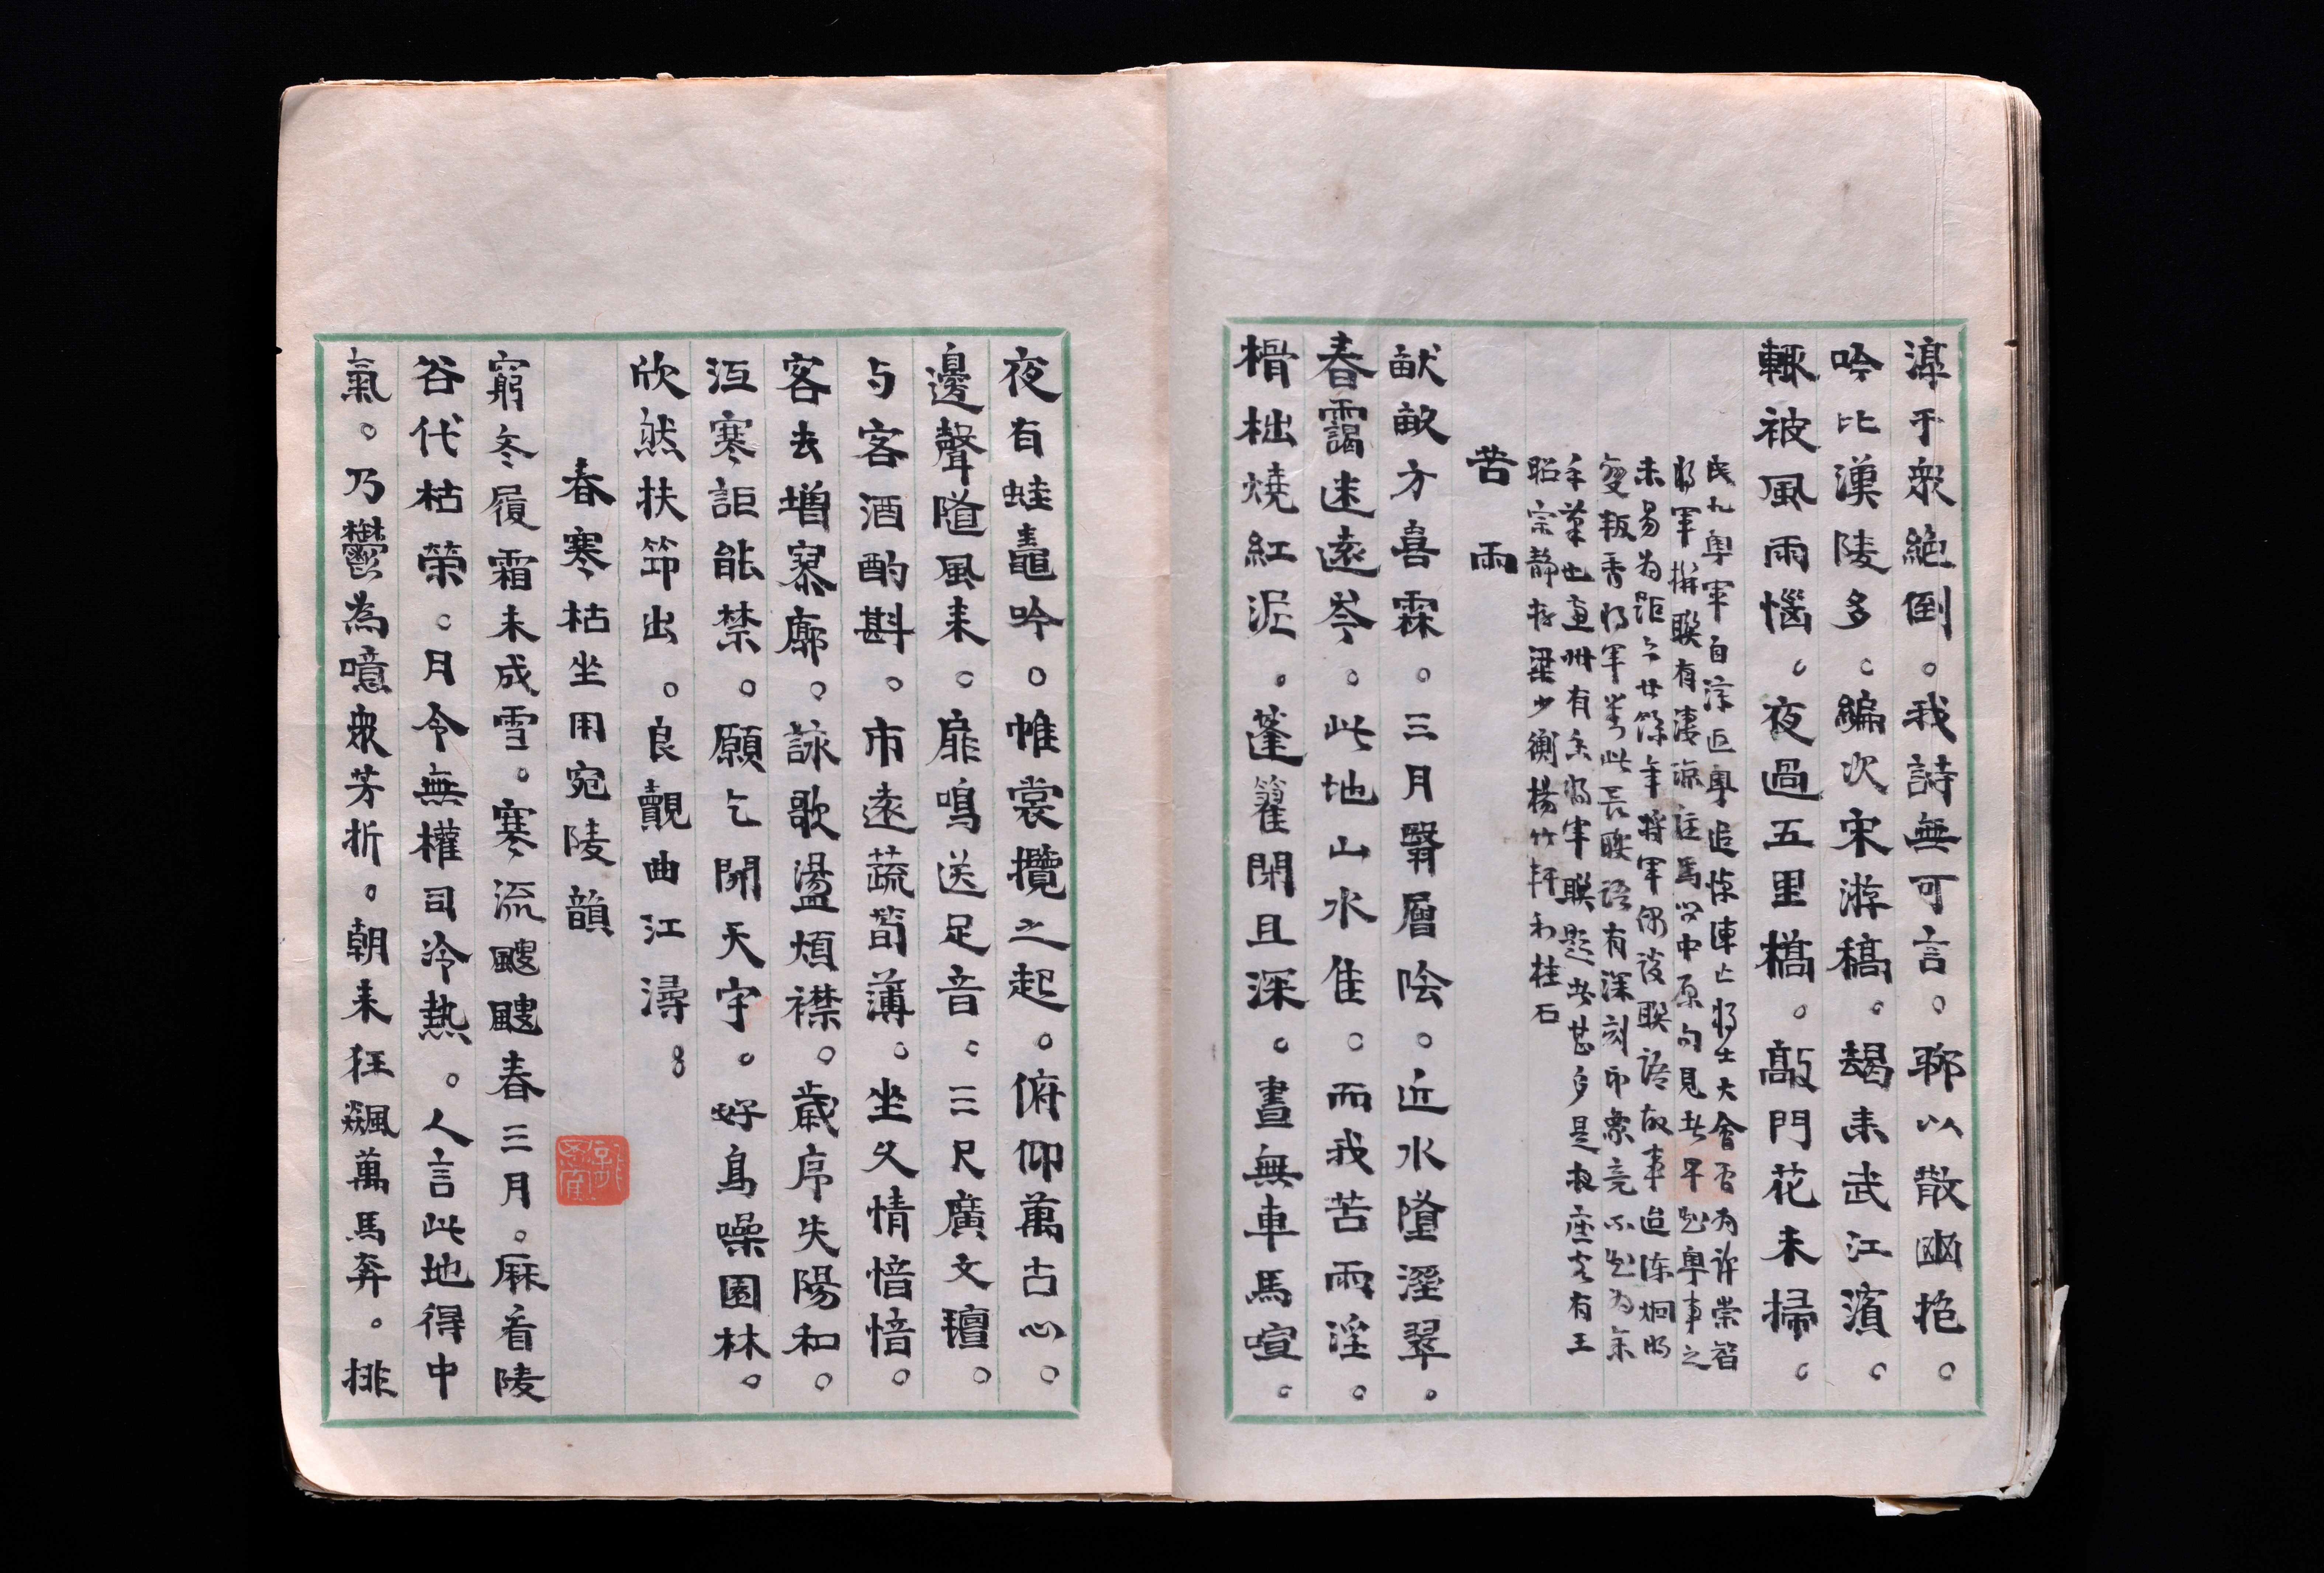 淳于衆絕倒。我詩無可言。聊以散幽抱。
吟比漢陵多。編次宋游稿。朅来武江濱。
輒被風雨惱。夜過五里橋。敲門花未掃。
民九粤軍自漳返粤追悼陣亡将士大會否为許崇智
将軍撰聯有淒涼駐馬望中原句見者早知粤事之
未易为距今廿餘年将軍偶談聯語故事迨陈炯明
变叛香将军著此長聯語有深刻印象竟不知为余
手藁也惠州有余将军聯題者甚多是夜座客有王
昭宗静存梁少衡楊竹軒和桂石
苦雨
畎畝方喜霖。三月翳層陰。近水墮溼翠。
春靄迷遠岑。此地山水佳。而我苦雨淫。
榾柮燒紅泥。蓬籊閉且深。晝無車馬喧。
夜有蛙黽吟。帷裳攬之起。俯仰萬古心。
邊聲隨風来。扉鳴送足音。三尺廣文氊。
与客酒酌斟。市遠蔬筍薄。坐久情愔愔。
客去增寥廓。詠歌盪煩襟。歲序失陽和。
沍寒詎能禁。願乞開天宇。好鳥噪園林。
欣然扶笻出。良覿曲江潯。
春寒枯坐用宛陵韻
窮冬履霜未成雪。寒流颼颼春三月。麻看陵
谷代枯榮。月令無權司冷熱。人言此地得中
氣。乃鬱為噫衆芳折。朝来狂飆萬馬奔。排